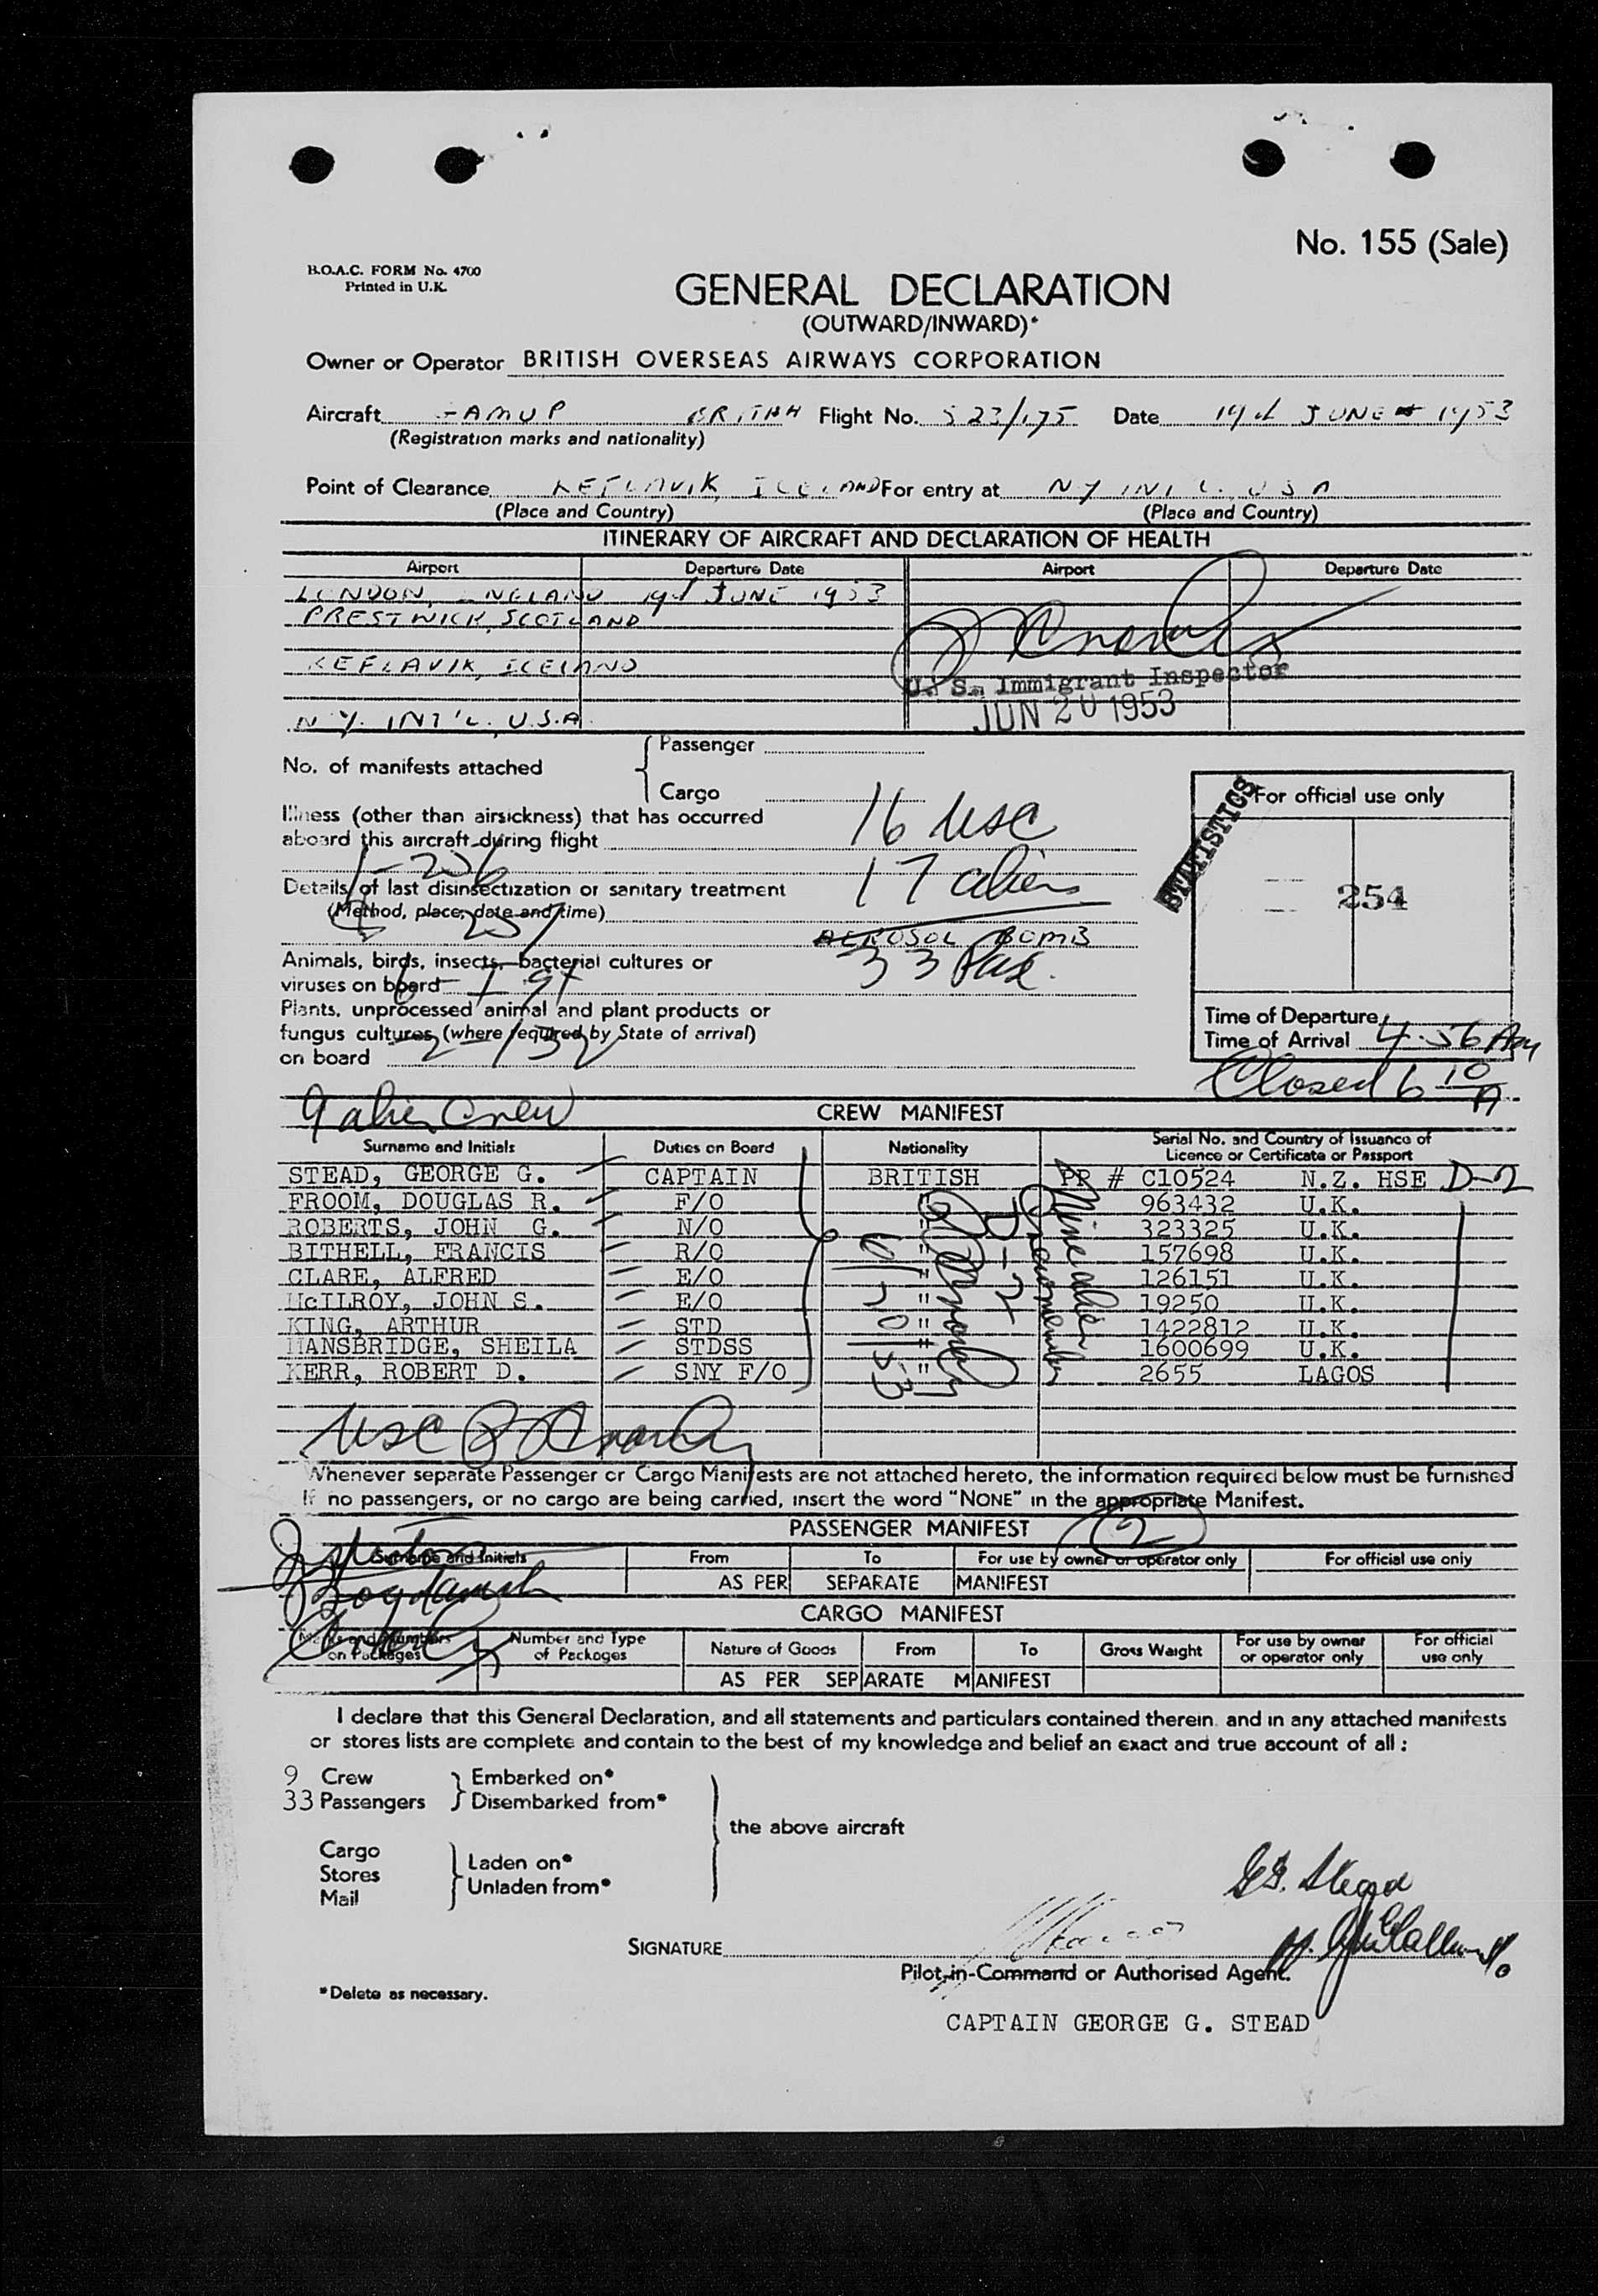 No. 155 (Sale)
B.O.A.C. FORM No. 4700
Printed in U.K.
GENERAL DECLARATION
(OUTWARD/INWARD)*
Owner or Operator BRITISH OVERSEAS AIRWAYS CORPORATION
Aircraft -AMUP BRITISH Flight No. 523/175 Date 19th JUNE 1953
(Registration marks and nationality)
Point of Clearance KEFLAVIK, ICELAND For entry at N Y INT'L, USA
(Place and Country) (Place and Country)
ITINERARY OF AIRCRAFT AND DECLARATION OF HEALTH
Airport Departure Date Airport Departure Date
LONDON, ENGLAND 19th JUNE 1953
PRESTWICK, SCOTLAND
KEFLAVIK, ICELAND
U. S. Immigrant Inspector
JUN 20 1953
N.Y. INT'L, U.S.A.
No. of manifests attached Passenger
Cargo
Illness (other than airsickness) that has occurred
aboard this aircraft during flight
16 USC
Details of last disinsectization or sanitary treatment
(Method, place, date and time)
17 alien
AEROSOL BOMB
33 Pax.
Animals, birds, insects, bacterial cultures or
viruses on board
Plants, unprocessed animal and plant products or
fungus cultures (where required by State of arrival)
on board
STATISTICS
For official use only
254
Time of Departure
Time of Arrival 4.56 Am
Closed 6 10 A
9 alien Crew
CREW MANIFEST
Surname and Initials Duties on Board Nationality Serial No. and Country of Issuance of
Licence or Certificate or Passport
STEAD, GEORGE G. CAPTAIN BRITISH PR # C10524 N.Z. HSE D-2
FROOM, DOUGLAS R. F/O " 963432 U.K.
ROBERTS, JOHN G. N/O " 323325 U.K.
BITHELL, FRANCIS R/O " 157698 U.K.
CLARE, ALFRED E/O " 126151 U.K.
McILROY, JOHN S. E/O " 19250 U.K.
KING, ARTHUR STD " 1422812 U.K.
MANSBRIDGE, SHEILA STDSS " 1600699 U.K.
KERR, ROBERT D. SNY F/O " 2655 LAGOS
Nine alien
Crewmembers
D-2
6/20/53
USC
Whenever separate Passenger or Cargo Manifests are not attached hereto, the information required below must be furnished
If no passengers, or no cargo are being carried, insert the word "NONE" in the appropriate Manifest.
PASSENGER MANIFEST 2
Surname and Initials From To For use by owner or operator only For official use only
AS PER SEPARATE MANIFEST
CARGO MANIFEST
Marks and Numbers on Packages Number and Type of Packages Nature of Goods From To Gross Weight For use by owner or operator only For official use only
AS PER SEPARATE MANIFEST
I declare that this General Declaration, and all statements and particulars contained therein and in any attached manifests
or stores lists are complete and contain to the best of my knowledge and belief an exact and true account of all :
9 Crew Embarked on*
33 Passengers Disembarked from*
the above aircraft
Cargo
Stores Laden on*
Mail Unladen from*
G.G. Stead
SIGNATURE
Pilot-in-Command or Authorised Agent.
*Delete as necessary.
CAPTAIN GEORGE G. STEAD